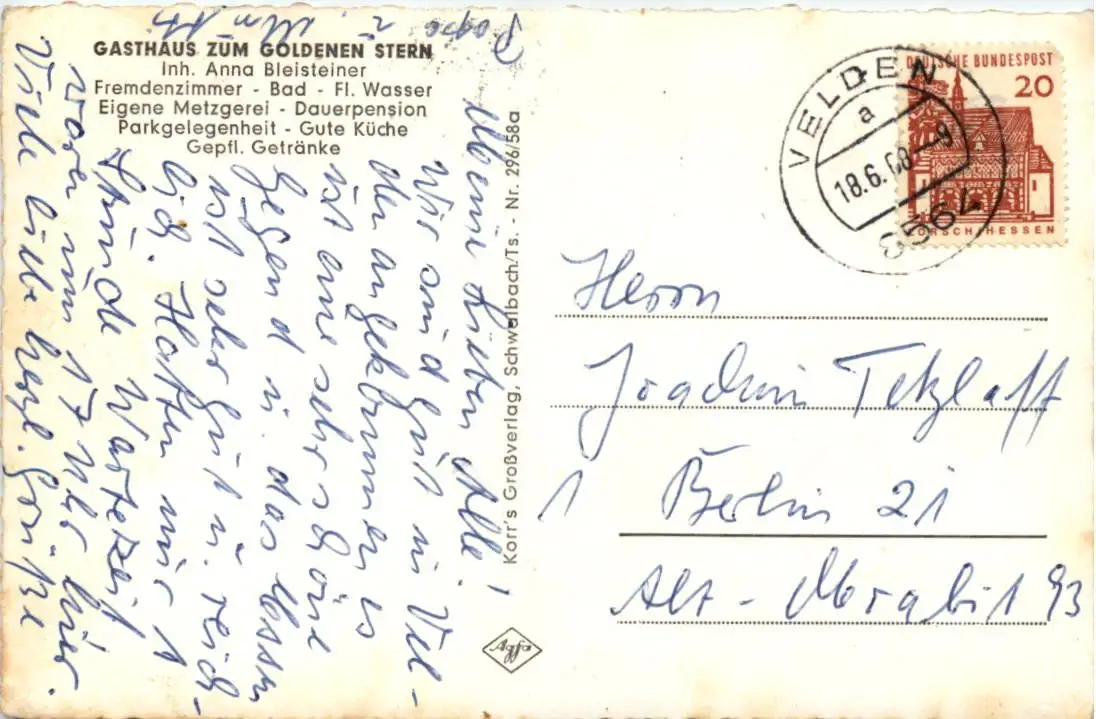 GASTHAUS ZUM GOLDENEN STERN
Inh. Anna Bleisteiner
Fremdenzimmer - Bad - Fl. Wasser
Eigene Metzgerei - Dauerpension
Parkgelegenheit - Gute Küche
Gepfl. Getränke
Meine Lieben Alle!
Wir sind gut in Vel-
den angekommen es
ist eine sehr schöne
Gegend u. das Essen
ist sehr gut u. reich-
lich. Hatten nur 1
Stunde Wartezeit
waren um 17 Uhr hier.
Viele liebe herzl. Grüße
Korr's Großverlag, Schwalbach/Ts. - Nr. 296/58a
Agfa
VELDEN
a
18.6.68-9
DEUTSCHE BUNDESPOST
20
LORSCH/HESSEN
Herrn
Joachim Tetzlaff
1 Berlin 21
Alt-Moabit 93